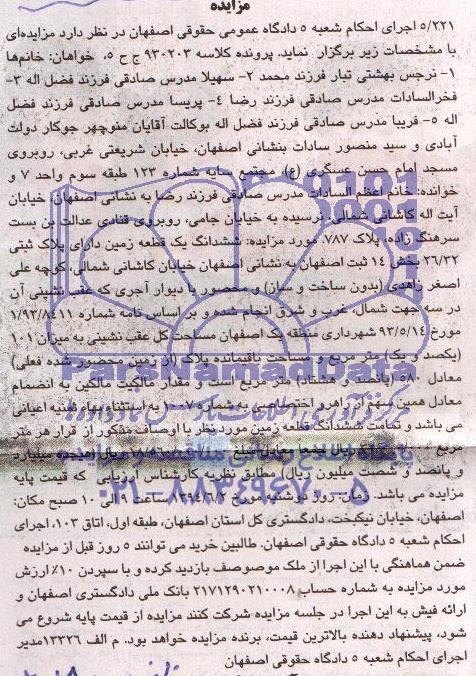 مزایده
۵/۲۲۱ اجرای احکام شعبه ۵ دادگاه عمومی حقوقی اصفهان در نظر دارد مزایده‌ای
با مشخصات زیر برگزار نماید. پرونده کلاسه ۹۳۰۲۰۳ ج ح ۵، خواهان: خانم‌ها
۱- نرجس بهشتی تبار فرزند محمد ۲- سهیلا مدرس صادقی فرزند فضل اله ۳-
فخرالسادات مدرس صادقی فرزند رضا ۴- پریسا مدرس صادقی فرزند فضل
اله ۵- فریبا مدرس صادقی فرزند فضل اله بوکالت آقایان منوچهر جوکار دولت
آبادی و سید منصور سادات بنشانی اصفهان، خیابان شریعتی غربی، روبروی
مسجد امام حسن عسگری (ع)، مجتمع سایه شماره ۱۲۳ طبقه سوم واحد ۷ و
خوانده: خانم اعظم السادات مدرس صادقی فرزند رضا به نشانی اصفهان، خیابان
آیت اله کاشانی شمالی، نرسیده به خیابان جامی، روبروی قنادی عدالت بن بست
سرهنگ زاده، پلاک ۷۸۷، مورد مزایده: ششدانگ یک قطعه زمین دارای پلاک ثبتی
۲۶/۳۲ بخش ۱۴ ثبت اصفهان به نشانی اصفهان خیابان کاشانی شمالی، کوچه علی
اصغر زاهدی (بدون ساخت و ساز) و محصور با دیوار آجری که عقب نشینی آن
در سه جهت شمال، غرب و شرق انجام شده و بر اساس نامه شماره ۱/۹۳/۸۴۱۱
مورخ ۹۳/۵/۱۴ شهرداری منطقه یک اصفهان مساحت کل عقب نشینی به میزان ۱۰۱
(یکصد و یک) متر مربع و مساحت باقیمانده پلاک (از زمین محصور شده فعلی)
معادل ۵۸۰ (پانصد و هشتاد) متر مربع است و مقدار مالکیت مالکین به انضمام
معادل همین سهم از راهرو اختصاصی به شماره ۷ به استثناء بهاء ثمنیه اعیانی
می باشد و تمامت ششدانگ قطعه زمین مورد نظر با اوصاف مذکور از قرار هر متر
مربع میلیارد
و پانصد و شصت میلیون ریال) مطابق نظریه کارشناس ارزیابی که قیمت پایه
مزایده می باشد. زمان: روز دوشنبه مورخ ۱۳۹۴/۶/۲ ساعت ۹ الی ۱۰ صبح مکان:
اصفهان، خیابان نیکبخت، دادگستری کل استان اصفهان، طبقه اول، اتاق ۱۰۳، اجرای
احکام شعبه ۵ دادگاه حقوقی اصفهان. طالبین خرید می توانند ۵ روز قبل از مزایده
ضمن هماهنگی با این اجرا از ملک موصوصف بازدید کرده و با سپردن ۱۰٪ ارزش
مورد مزایده به شماره حساب ۲۱۷۱۲۹۰۲۱۰۰۰۸ بانک ملی دادگستری اصفهان و
ارائه فیش به این اجرا در جلسه مزایده شرکت کنند مزایده از قیمت پایه شروع می
شود، پیشنهاد دهنده بالاترین قیمت، برنده مزایده خواهد بود. م الف ۱۳۳۲۶مدیر
اجرای احکام شعبه ۵ دادگاه حقوقی اصفهان
ParsNamadData
پایگاه اطلاع رسانی مناقصه و مزایده
۰۲۱-۸۸۳۴۹۶۷۰-۵